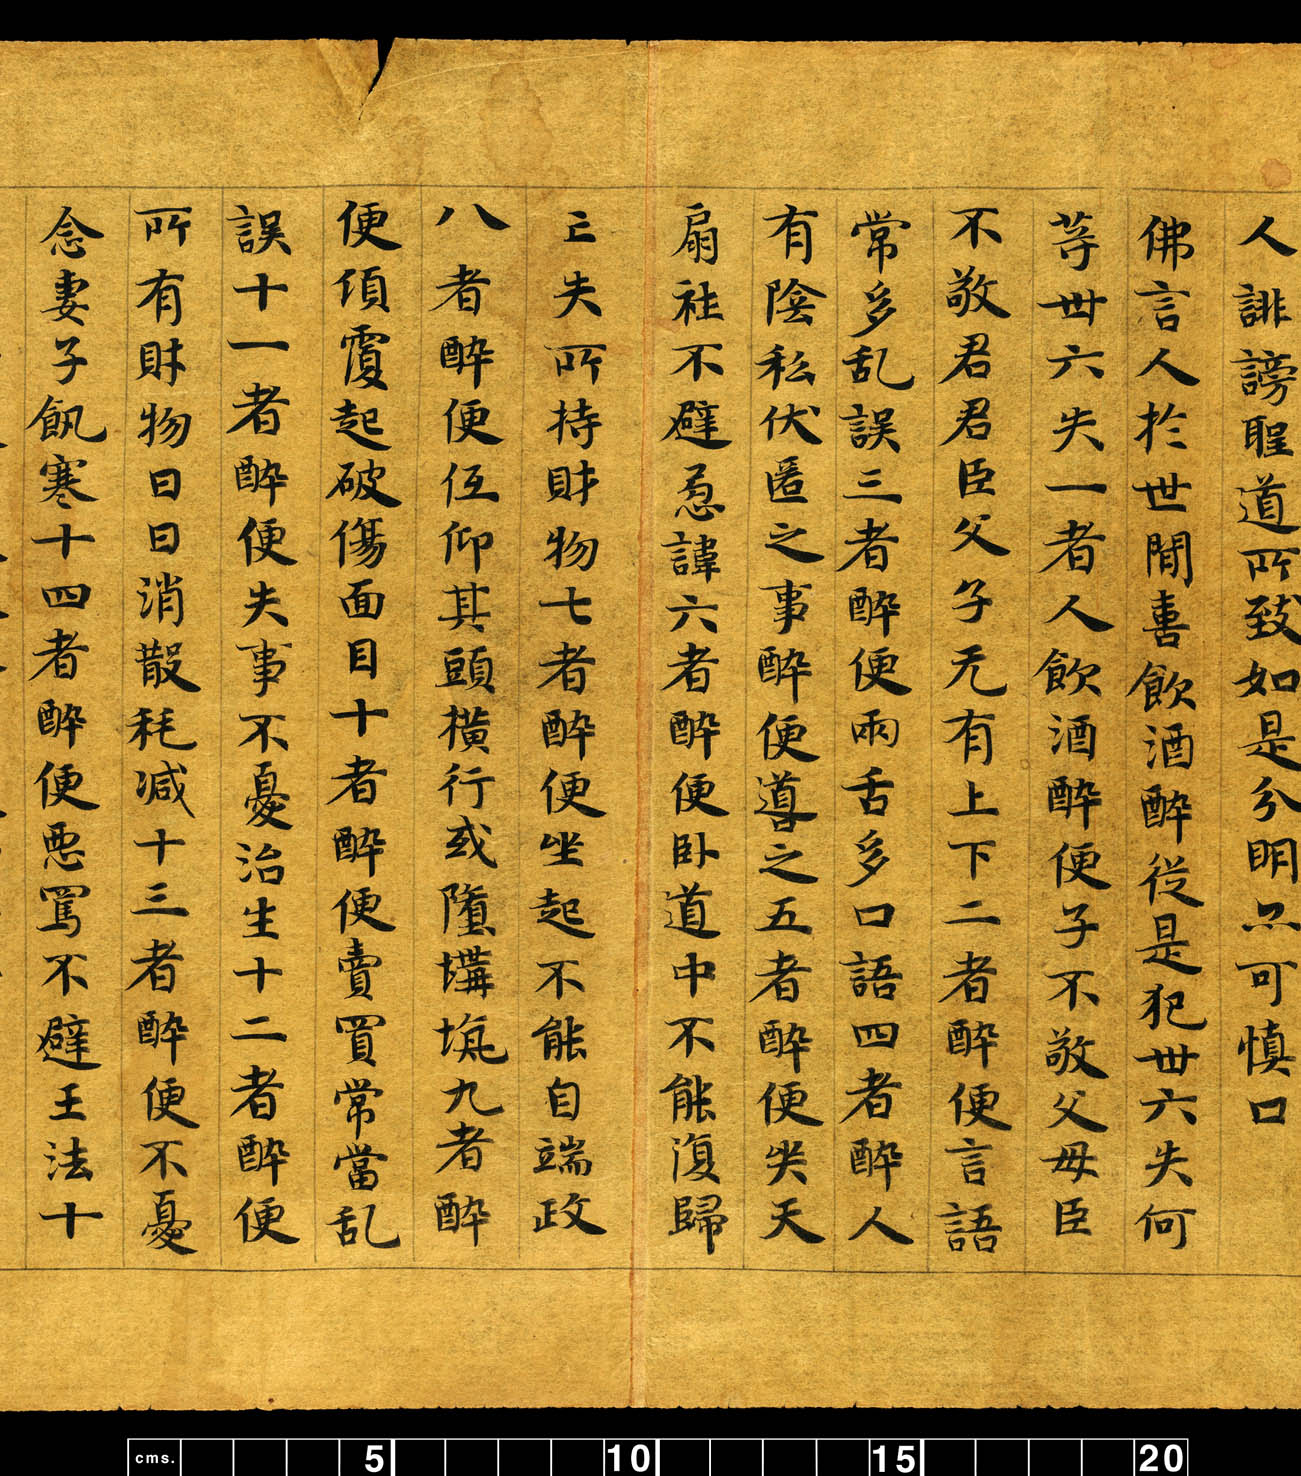 人誹謗聖道所致如是分明亦可慎口
佛言人於世間喜飲酒醉從是犯卅六失何
等卅六失一者人飲酒醉便子不敬父母臣
不敬君君臣父子无有上下二者醉便言語
常多乱誤三者醉便兩舌多口語四者醉人
有陰私伏匿之事醉便導之五者醉便哭天
扇社不避忌諱六者醉便卧道中不能復歸
亡失所持財物七者醉便坐起不能自端政
八者醉便伍仰其頭橫行或墮壔坑九者醉
便須覆起破傷面目十者醉便賣買常當乱
誤十一者醉便失事不憂治生十二者醉便
所有財物日日消散耗減十三者醉便不憂
念妻子飢寒十四者醉便惡罵不避王法十
cms. 5 10 15 20